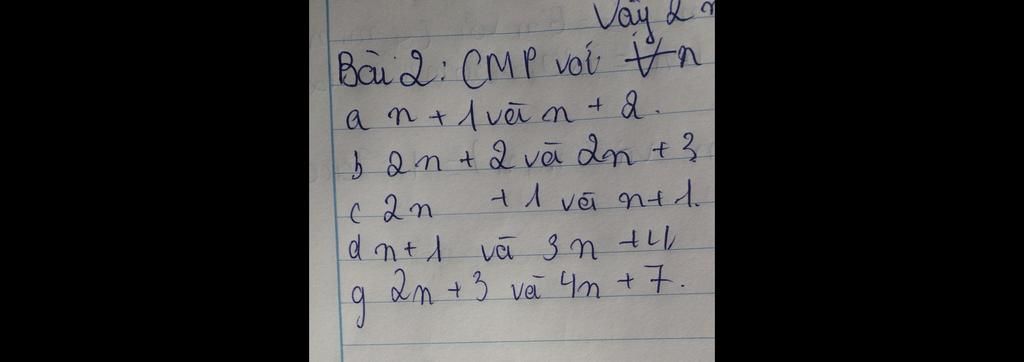 Vậy 2n
Bài 2: CMP với ∀ n
a n + 1 và n + 2.
b 2n + 2 và 2n + 3
c 2n + 1 và n + 1.
d n + 1 và 3n + 4
g 2n + 3 và 4n + 7.